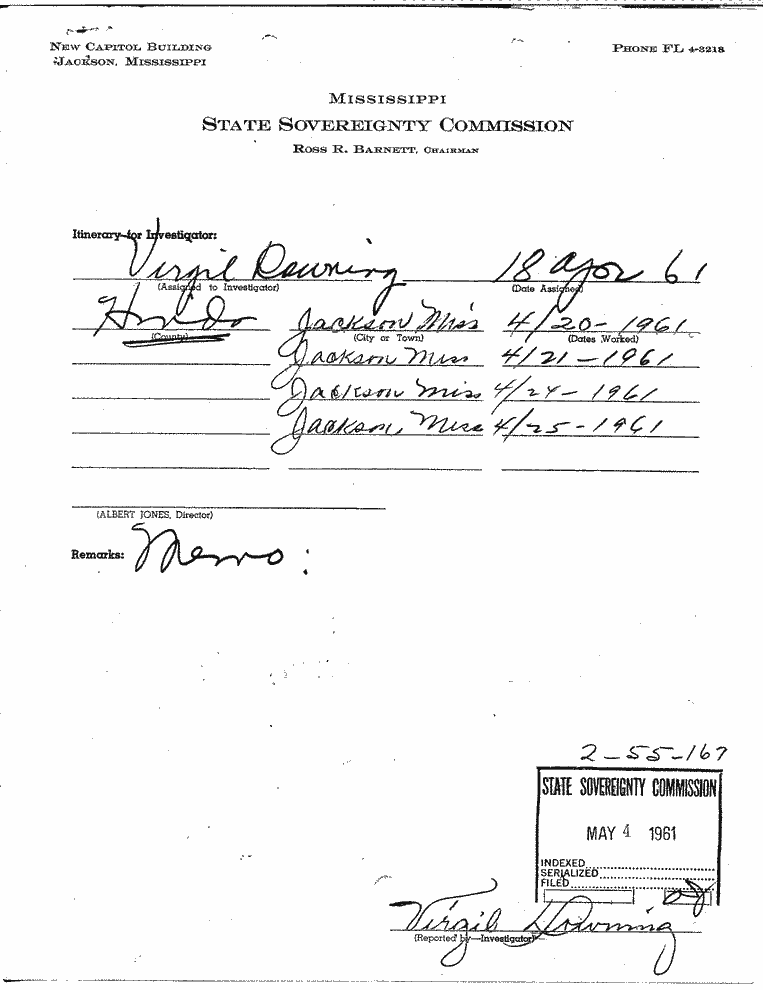 NEW CAPITOL BUILDING
JACKSON, MISSISSIPPI
PHONE FL 4-3218
MISSISSIPPI
STATE SOVEREIGNTY COMMISSION
ROSS R. BARNETT, CHAIRMAN
Itinerary for Investigator:
Virgil Downing 18 Apr 61
(Assigned to Investigator) (Date Assigned)
Hinds Jackson Miss 4/20-1961
(County) (City or Town) (Dates Worked)
Jackson Miss 4/21-1961
Jackson Miss 4/24-1961
Jackson, Miss 4/25-1961
(ALBERT JONES, Director)
Remarks: Memo:
2-55-167
STATE SOVEREIGNTY COMMISSION
MAY 4 1961
INDEXED
SERIALIZED
FILED
Virgil Downing
(Reported by—Investigator)